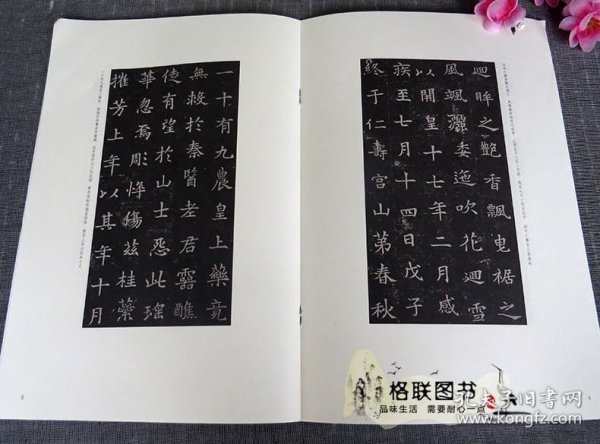 迴眸之艷香飄曳裾之
風颯灑委迤吹花迴雪
以開皇十七年二月感
疾至七月十四日戊子
終于仁壽宮山第春秋
一十有九農皇上藥竟
無救於秦醫老君靈醮
徒有望於山士悲此瑤
華忽焉彫悴傷茲桂蘂
摧芳上年以其年十月
格联图书
品味生活 需要耐心一点
孔夫子旧书网
www.kongfz.com